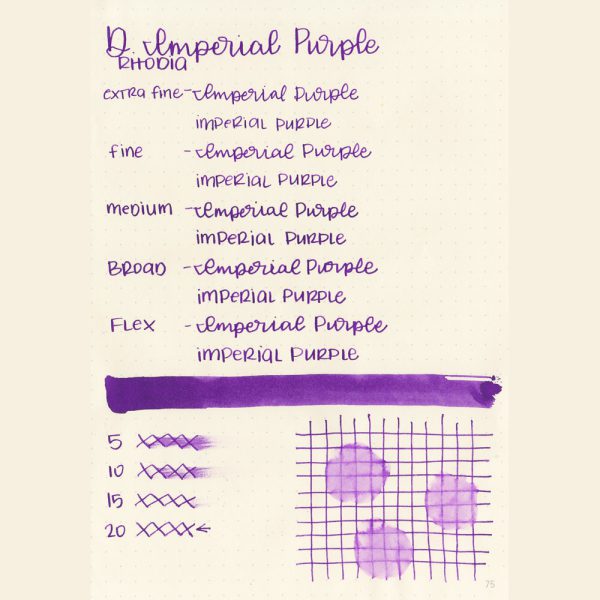 D. Imperial Purple
RHODIA
extra fine - Imperial Purple
imperial purple
fine - Imperial Purple
imperial purple
medium - Imperial Purple
imperial purple
Broad - Imperial Purple
imperial purple
Flex - Imperial Purple
imperial purple
5 XXXX
10 XXXX
15 XXXX
20 XXXX ←
75